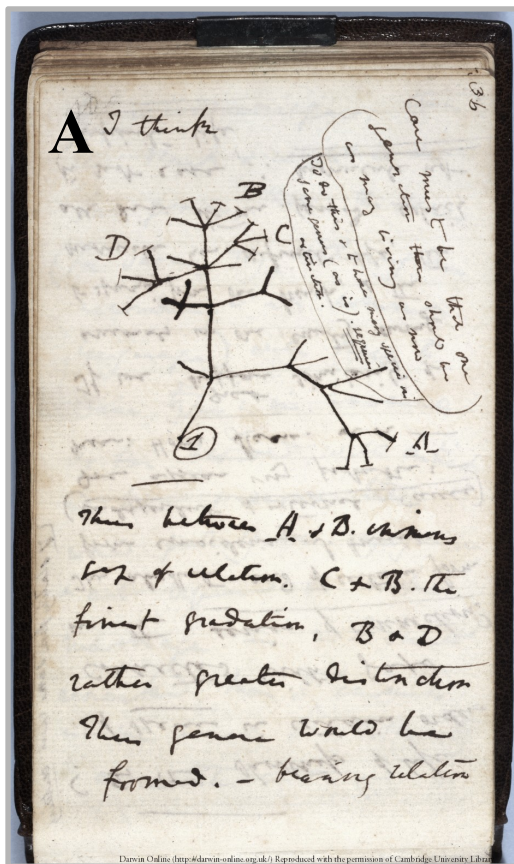 36
A
I think
Case must be that one
generation then should be
as many living as now
To do this & to have many species in
same genus (as is) requires
extinction.
B
D
C
1
A
Thus between A & B. immens
gap of relation. C & B. the
finest gradation, B & D
rather greater distinction
Thus genera would be
formed. — bearing relation
Darwin Online (http://darwin-online.org.uk/) Reproduced with the permission of Cambridge University Library